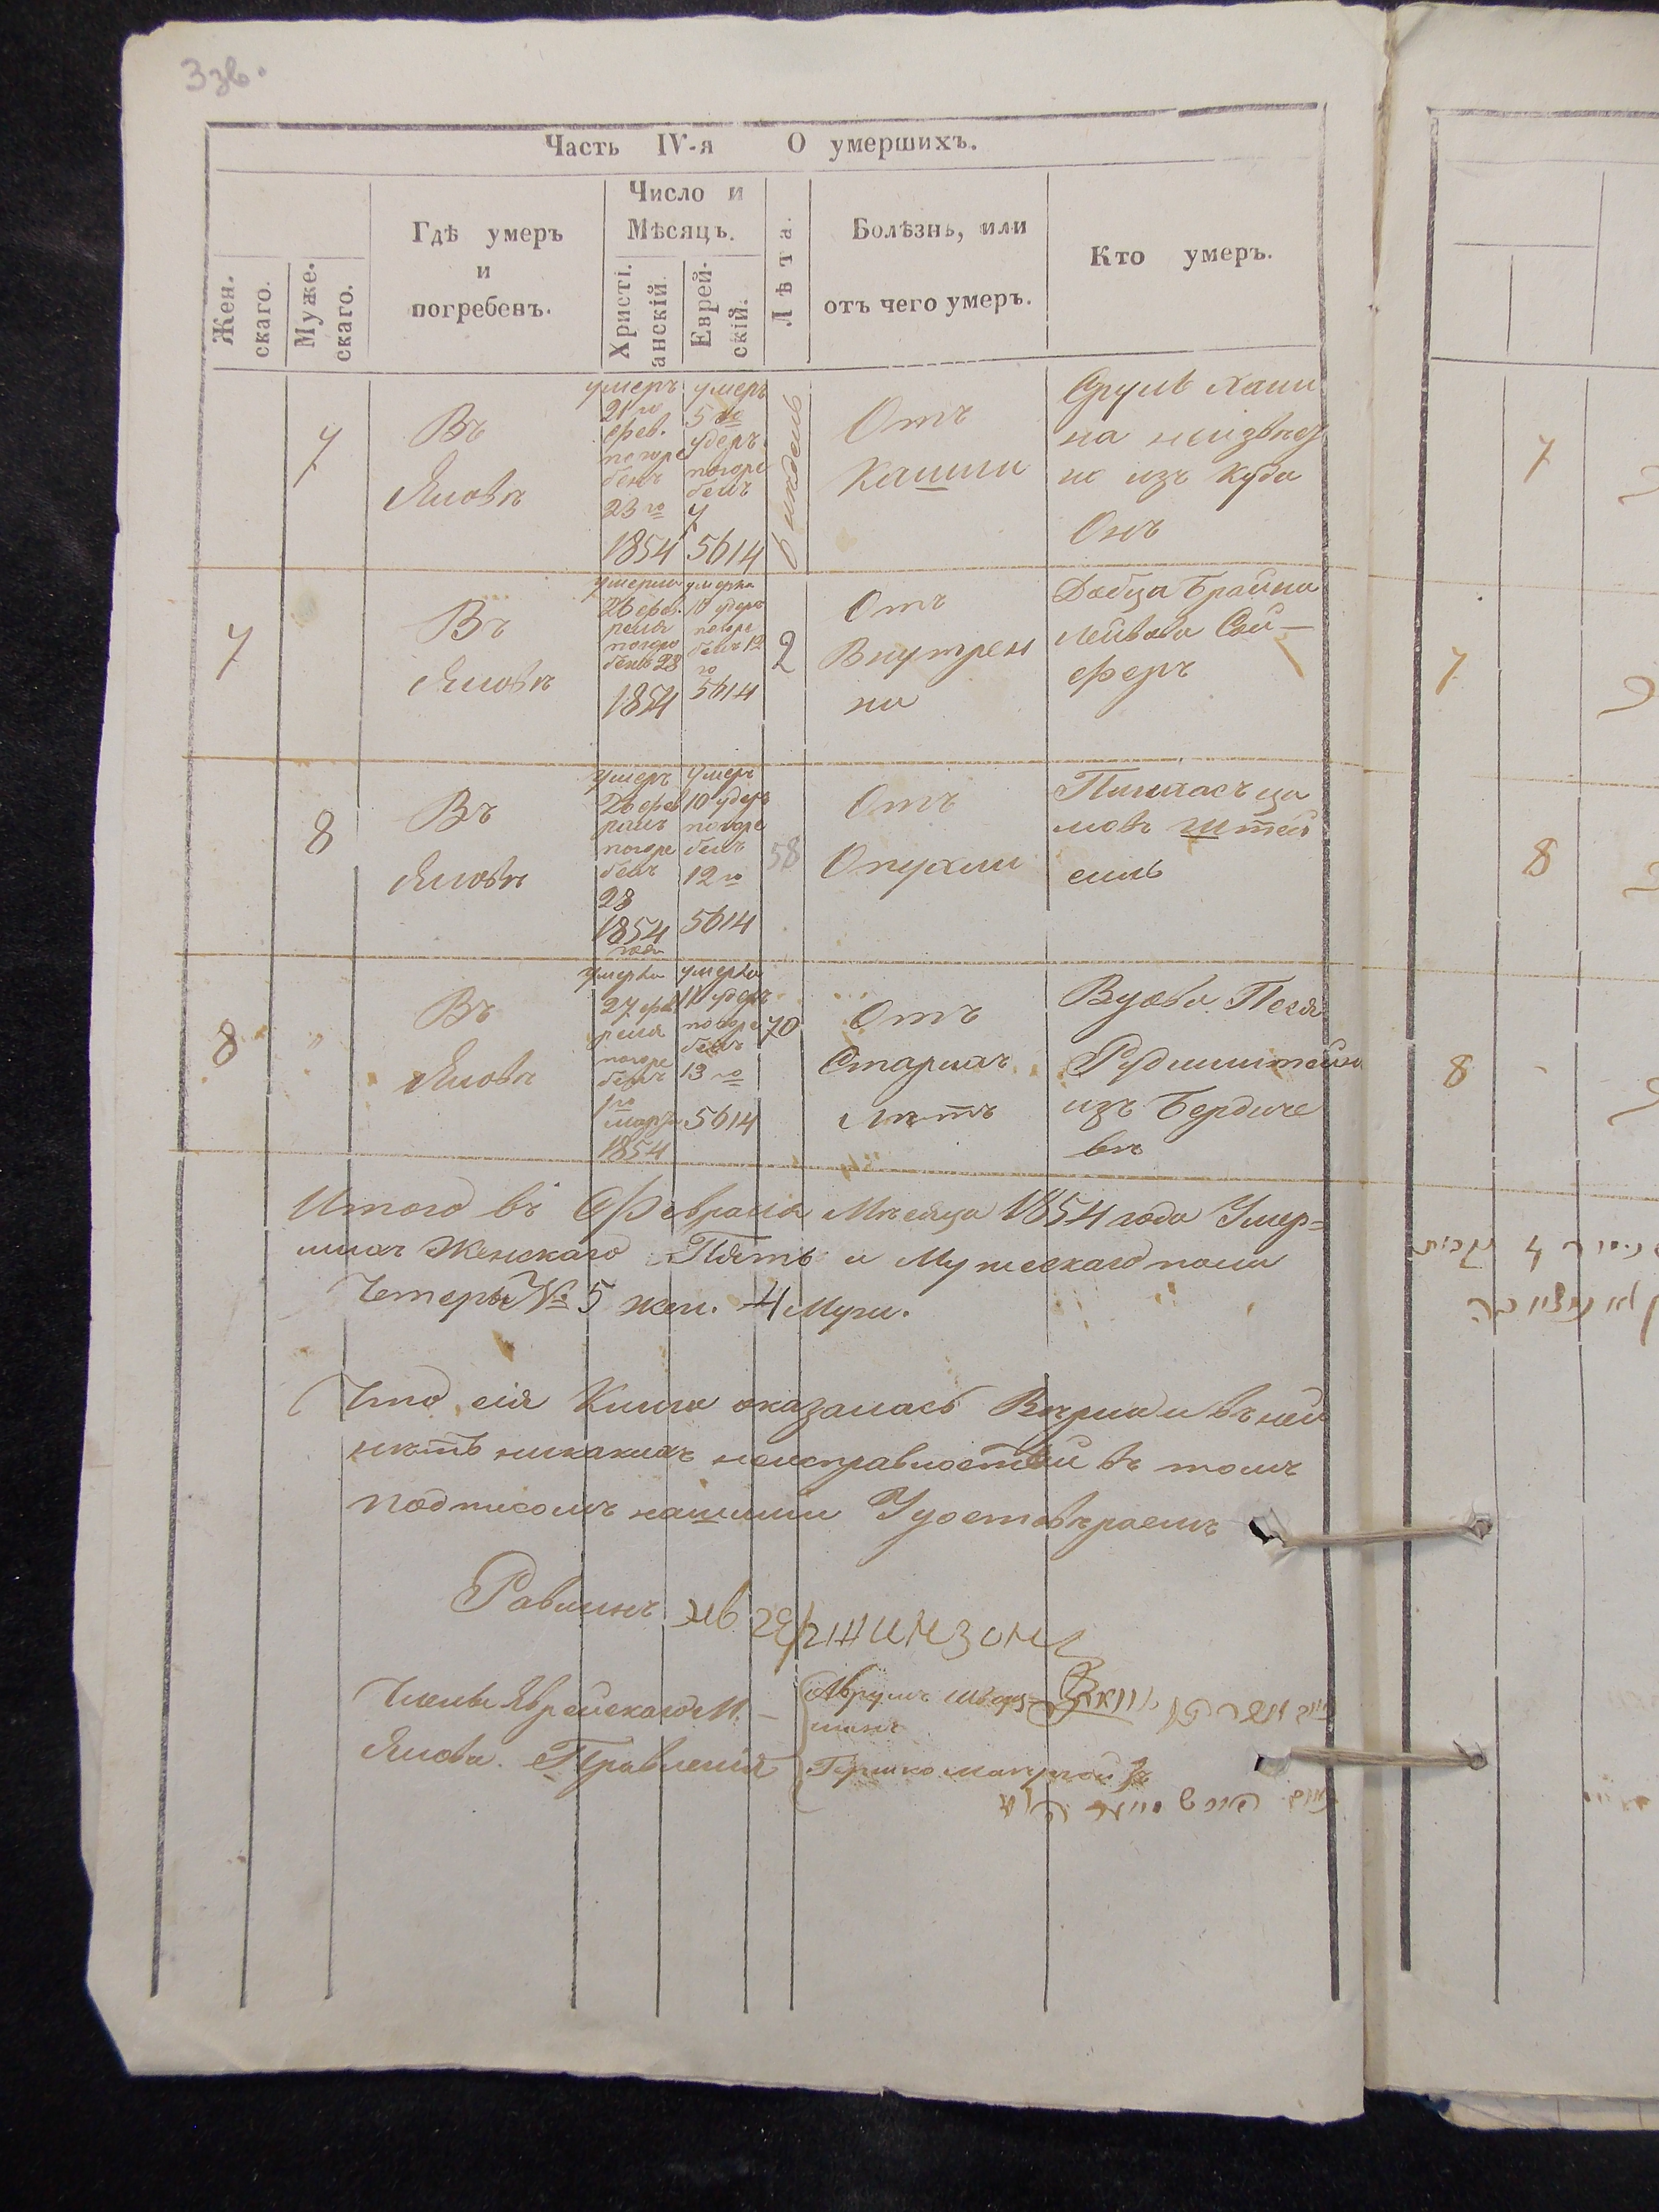 3 зв.
Часть IV-я О умершихъ.
Жен-
скаго.
Муже-
скаго.
Гдѣ умеръ
и
погребенъ.
Число и
Мѣсяцъ.
Христі-
анскій.
Еврей-
скій.
Лѣта.
Болѣзнь, или
отъ чего умеръ.
Кто умеръ.
7
Въ
Яновѣ
умеръ
21 го
фев.
погре
бенъ
23 го
1854
умеръ
5 го
удеръ
погре
бенъ
7
5614
6 недель
Отъ
Кашли
Срулъ Хаи
на неизвѣс
но изъ куда
Онъ
7
Въ
Яновѣ
умерла
26 фев.
раля
погре
бенъ 28
1854
умерла
10 удеръ
погре
бенъ 12
го
5614
2
Отъ
Внутрен
ни
Двойра Брайна
Лейбова Сой-
феръ
8
Въ
Яновѣ
умеръ
26 фев
раль
погре
бенъ
28
1854
года
умеръ
10 удеръ
погре
бенъ
12 го
5614
58
Отъ
Опухли
Пинхасъ
мовъ Штей
8 "
Въ
Яновѣ
умерла
27 фев
раля
погре
бенъ
1 го
марта
1854
умерла
11 удеръ
погре
бенъ
13 го
5614
70
Отъ
Старихъ
Лѣтъ
Вдова Песя
Рудинштейнъ
изъ Бердиче
въ
Итого въ Февраля Мѣсяца 1854 года Умер=
шихъ Женскаго Пять и Мужескаго пола
Четеры № 5 жен. 4 Муж.
Что сія Книга оказалась Вѣрна и въ ней
нѣтъ никакихъ неисправностей въ томъ
подписомъ нашими Удостовѣраемъ
Равинъ
Члены Еврейскаго М. -
Янова. Правленія
Аврумъ Шварц=
манъ
Гершко
7
7
8
8